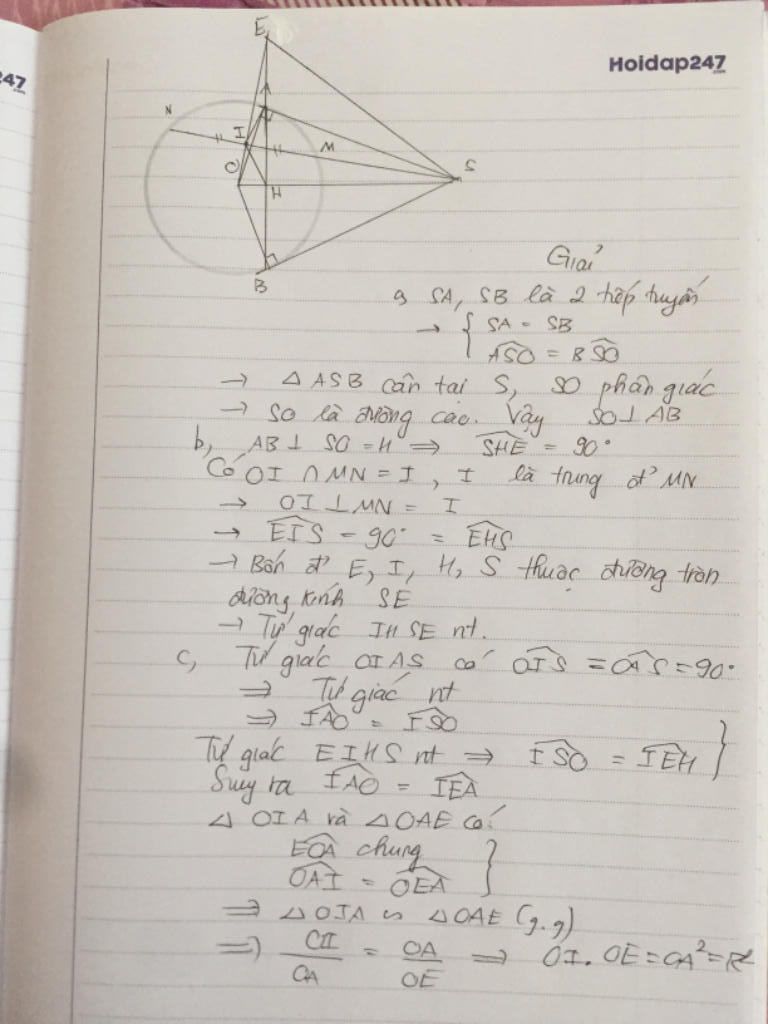 247
.com
Hoidap247
.com
E
A
N
I
M
S
O
H
B
Giải
a, SA, SB là 2 tiếp tuyến
→ { SA = SB
∠ASO = B∠SO
→ △ ASB cân tại S, SO phân giác
→ SO là đường cao. Vậy SO ⊥ AB
b, AB ⊥ SO = H ⟹ ∠SHE = 90°
Có OI ∩ MN = I, I là trung đ' MN
→ OI ⊥ MN = I
→ ∠EIS = 90° = ∠EHS
→ Bốn đ' E, I, H, S thuộc đường tròn
đường kính SE
→ Tứ giác IHSE nt.
c, Tứ giác OIAS có ∠OIS = ∠OAS = 90°
⟹ Tứ giác nt
⟹ ∠IAO = ∠ISO
Tứ giác EIHS nt ⟹ ∠ISO = ∠IEH }
Suy ra ∠IAO = ∠IEA
△ OIA và △OAE có:
∠EOA chung
∠OAI = ∠OEA }
⟹ △OIA ∽ △OAE (g.g)
⟹ OI/OA = OA/OE ⟹ OI. OE = OA² = R²